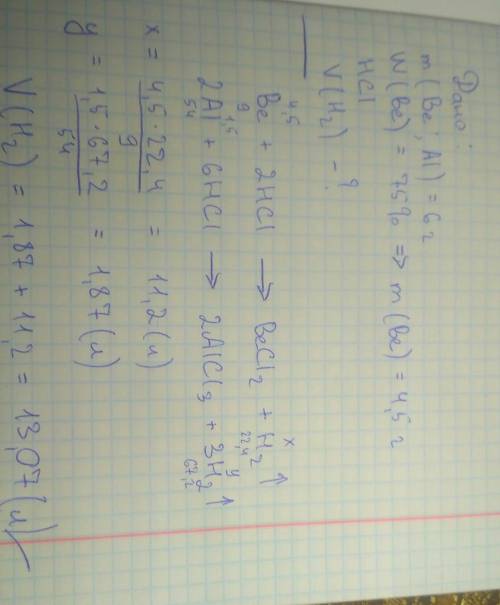 Дано:
m(Be; Al) = 6 г
W(Be) = 75% => m(Be) = 4,5 г
HCl
V(H₂) - ?
4,5 x
Be + 2HCl → BeCl₂ + H₂ ↑
9 22,4
1,5 y
2Al + 6HCl → 2AlCl₃ + 3H₂ ↑
54 67,2
x = 4,5·22,4 / 9 = 11,2 (л)
y = 1,5·67,2 / 54 = 1,87 (л)
V(H₂) = 1,87 + 11,2 = 13,07 (л)